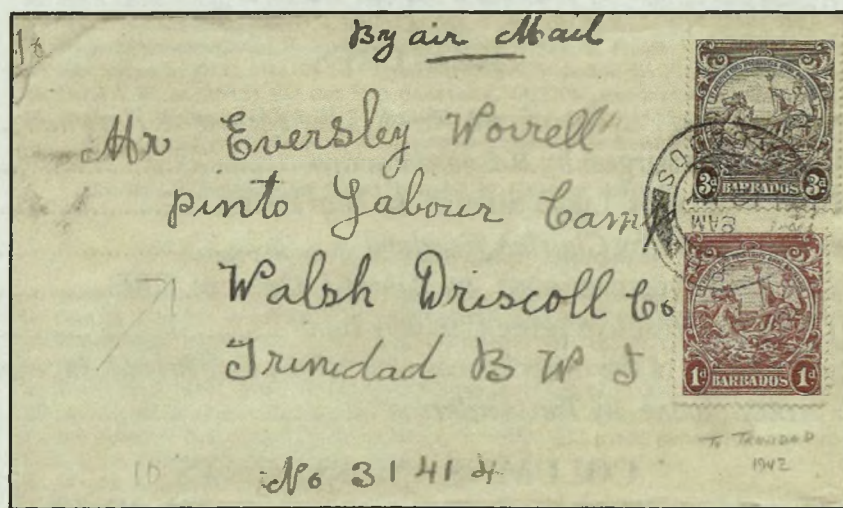 By air Mail
Mr Eversley Worrell
Pinto Labour Camp
Walsh Driscoll Co
Trinidad B W I
No 31414
10
3d BARBADOS 3d
1d BARBADOS 1d
To TRINIDAD
1942